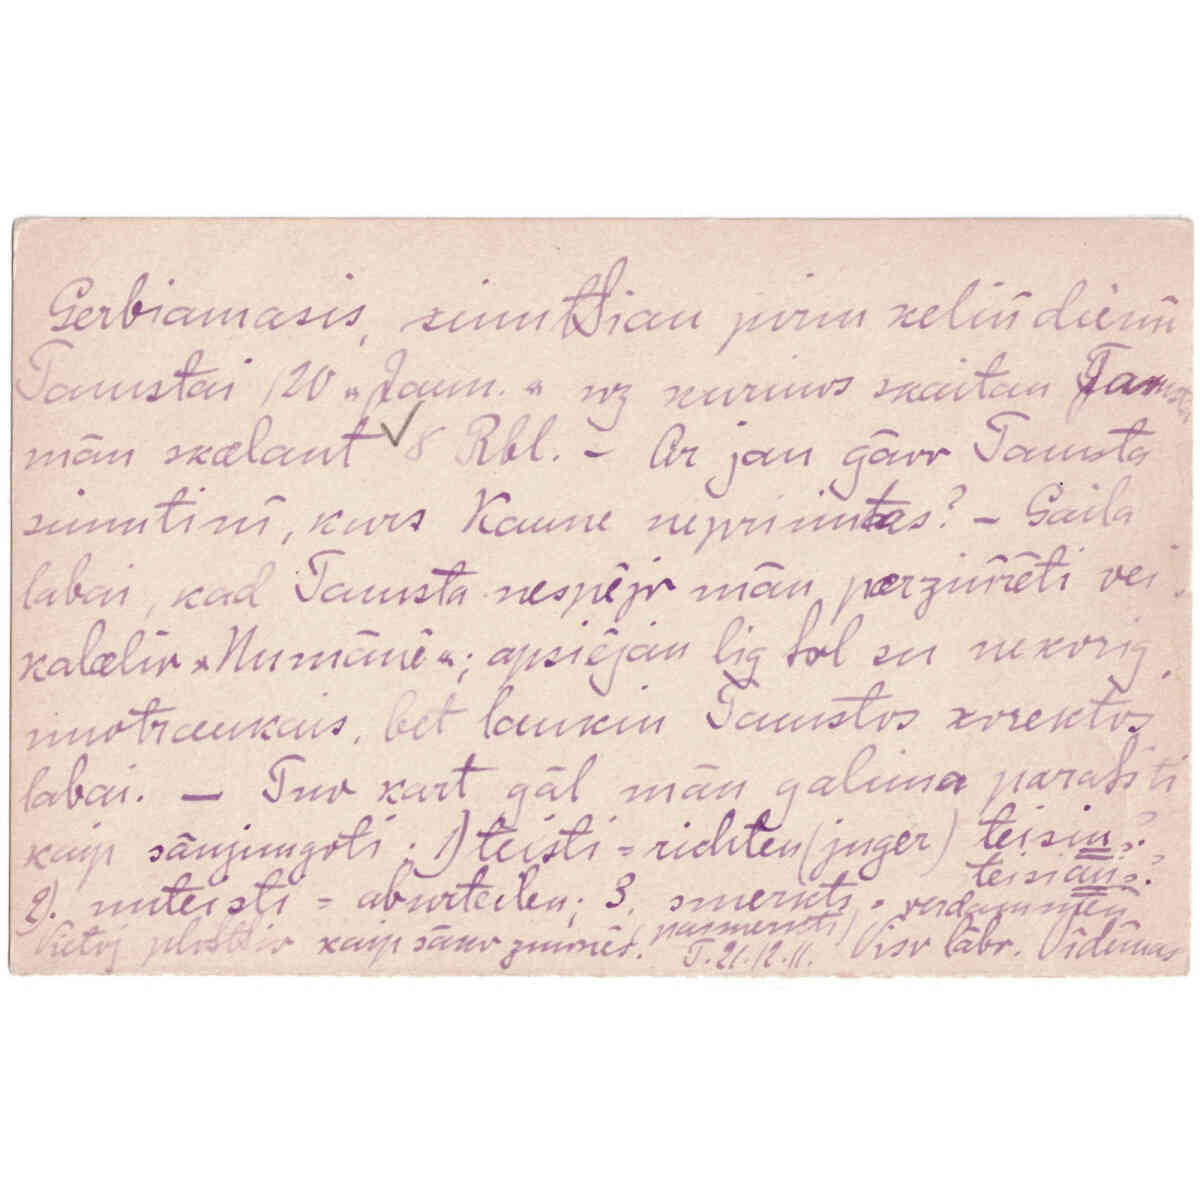 Gerbiamasis, siuntẛian pirm keliū dienū
Tamstai 120 „Jaun.“ uz kurius skaitau Tamsta
mān skælant 8 Rbl. – Ar jau gāvo Tamsta
siuntinī, kurs Kaune nepriimtas? – Gaila
labai, kad Tamsta nespējo mān pærziūrēti vei-
kalælio „Numānē“; apsiējau lig šol su nekorig.
nuotraukais, bet laukiu Tamstos korektos
labai. — Tuo kart gāl mān galima parašiti
kaip sānjungoti: 1) teisti = richten (juger) teisiu?
teisiau?
2). nuteisti = aburteilen; 3. smerkti = verdammen
(pasmerkti)
Vietoj kaip sāko zmonēs. T. 21.12.11. Viso lābo. Vidūnas